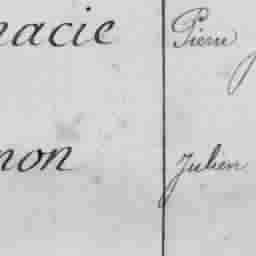 nacie Pierre
non Julien